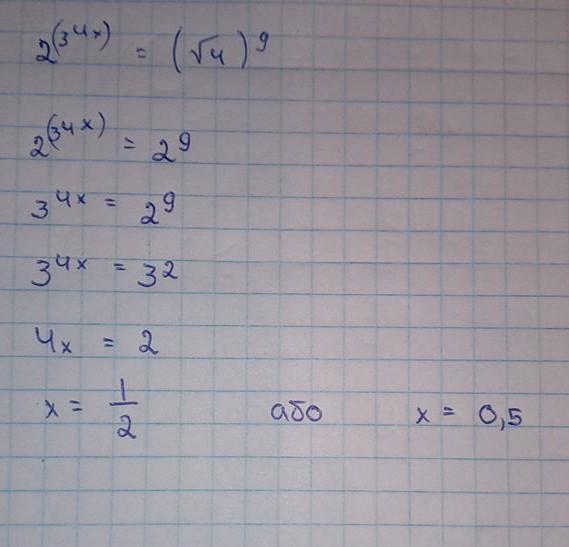 2^(3^4x) = (√4)^9
2^(3^4x) = 2^9
3^4x = 2^9
3^4x = 3^2
4x = 2
x = 1/2 або x = 0,5